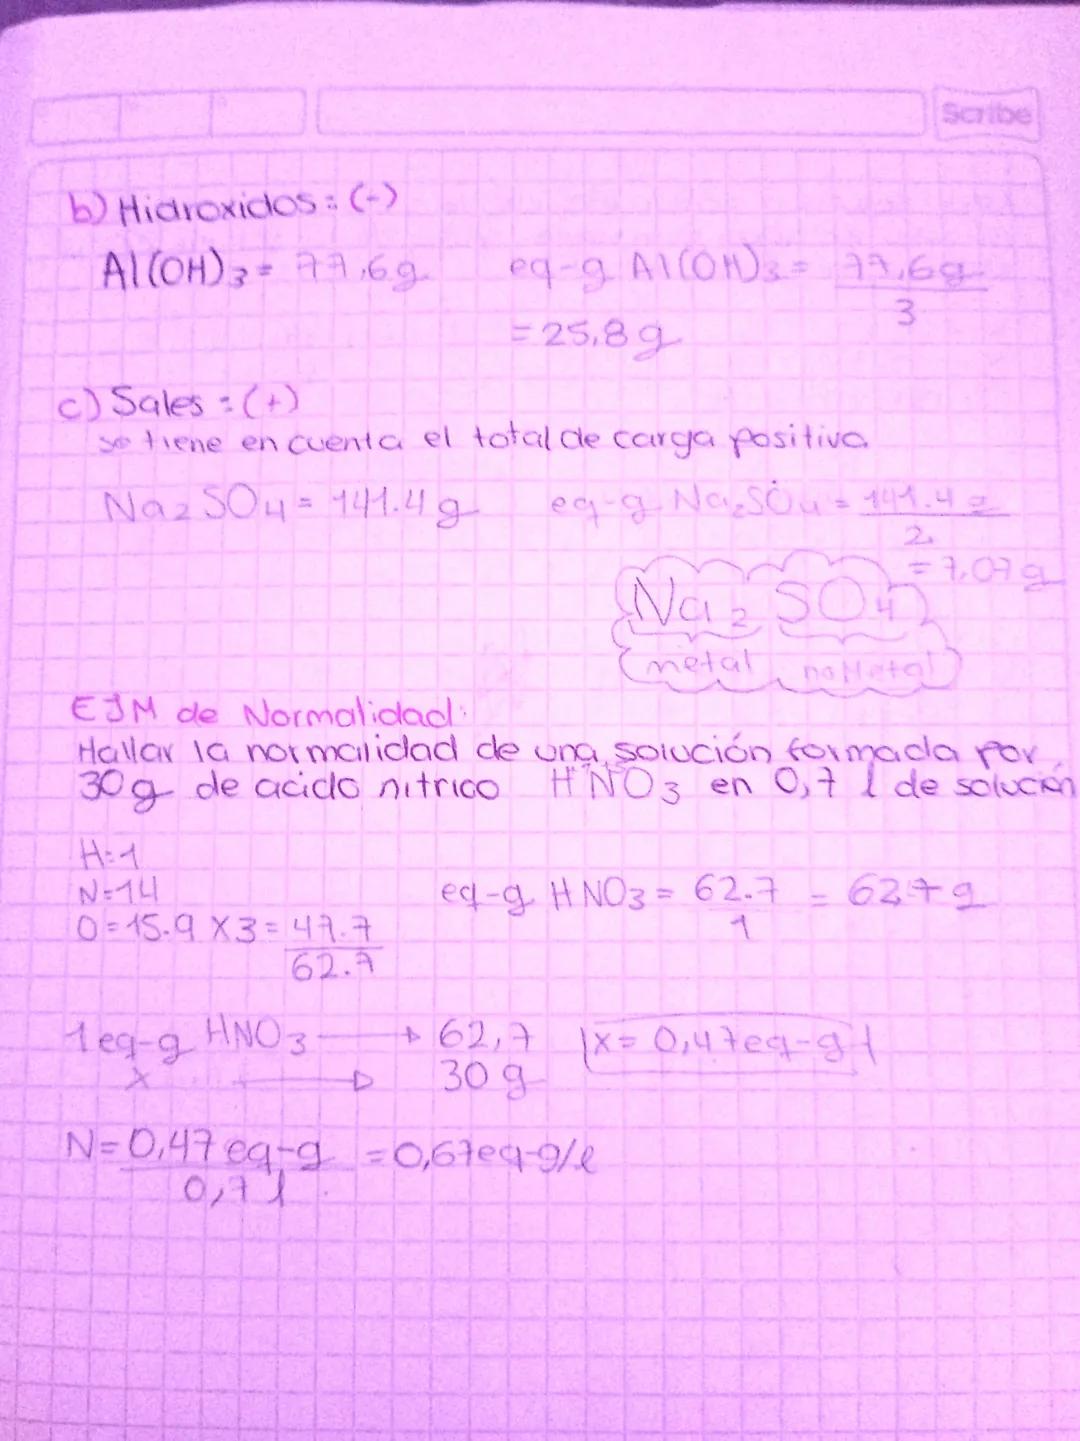 Scribe
b) Hidroxidos: (-)
Al(OH)3 = 77,6g eq-g Al(OH)3 = 77,6g
3
= 25,8g
c) Sales: (+)
se tiene en cuenta el total de carga positiva
Na2SO4 = 141.4g eq-g Na2SO4 = 141.4g
2
= 7,07g
Na2 SO4
metal no Metal
EJM de Normalidad:
Hallar la normalidad de una solución formada por
30g de acido nitrico HNO3 en 0,7 l de solución
H=1
N=14 eq-g HNO3 = 62.7 = 62.7g
O=15.9 X3= 47.7 1
62.7
1eq-g HNO3 → 62,7 x= 0,47eq-g
x → 30g
N= 0,47 eq-g = 0,67eq-g/l
0,7 l